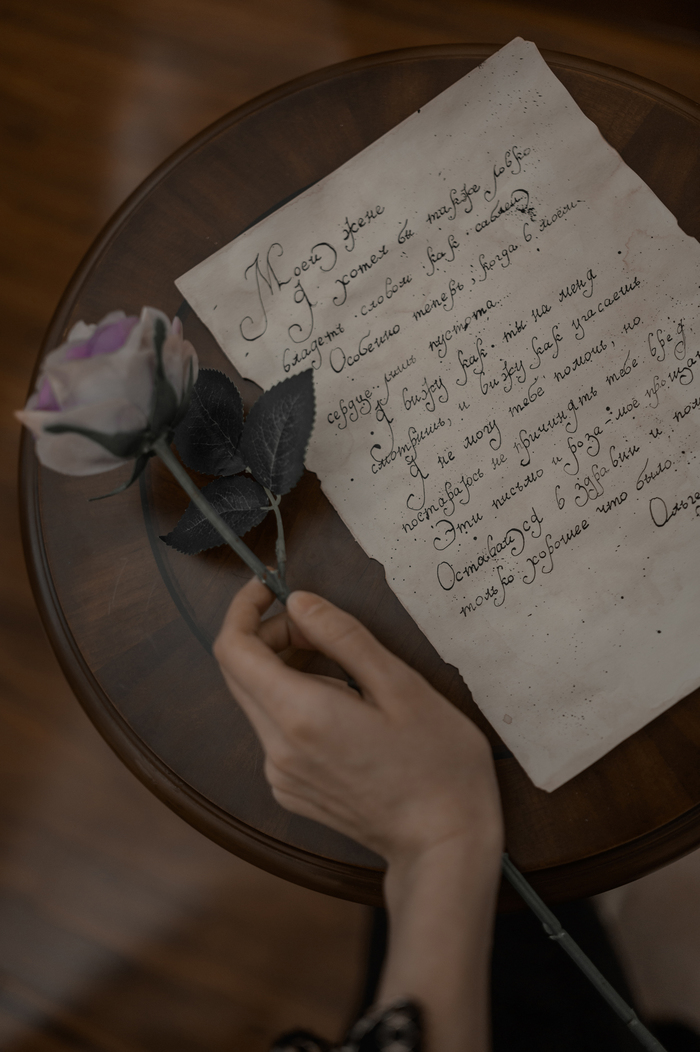 Моей жене
Я хотел бы также ловко
владеть словом как саблей
Особенно теперь, когда в моём
сердце лишь пустота..
Я вижу как ты на меня
смотришь, и вижу как угасаешь
Я не могу тебе помочь, но
постараюсь не причинять тебе вред
Эти письмо и роза - моё
Оставайся в здравии и
только хорошее что было.
Ольга